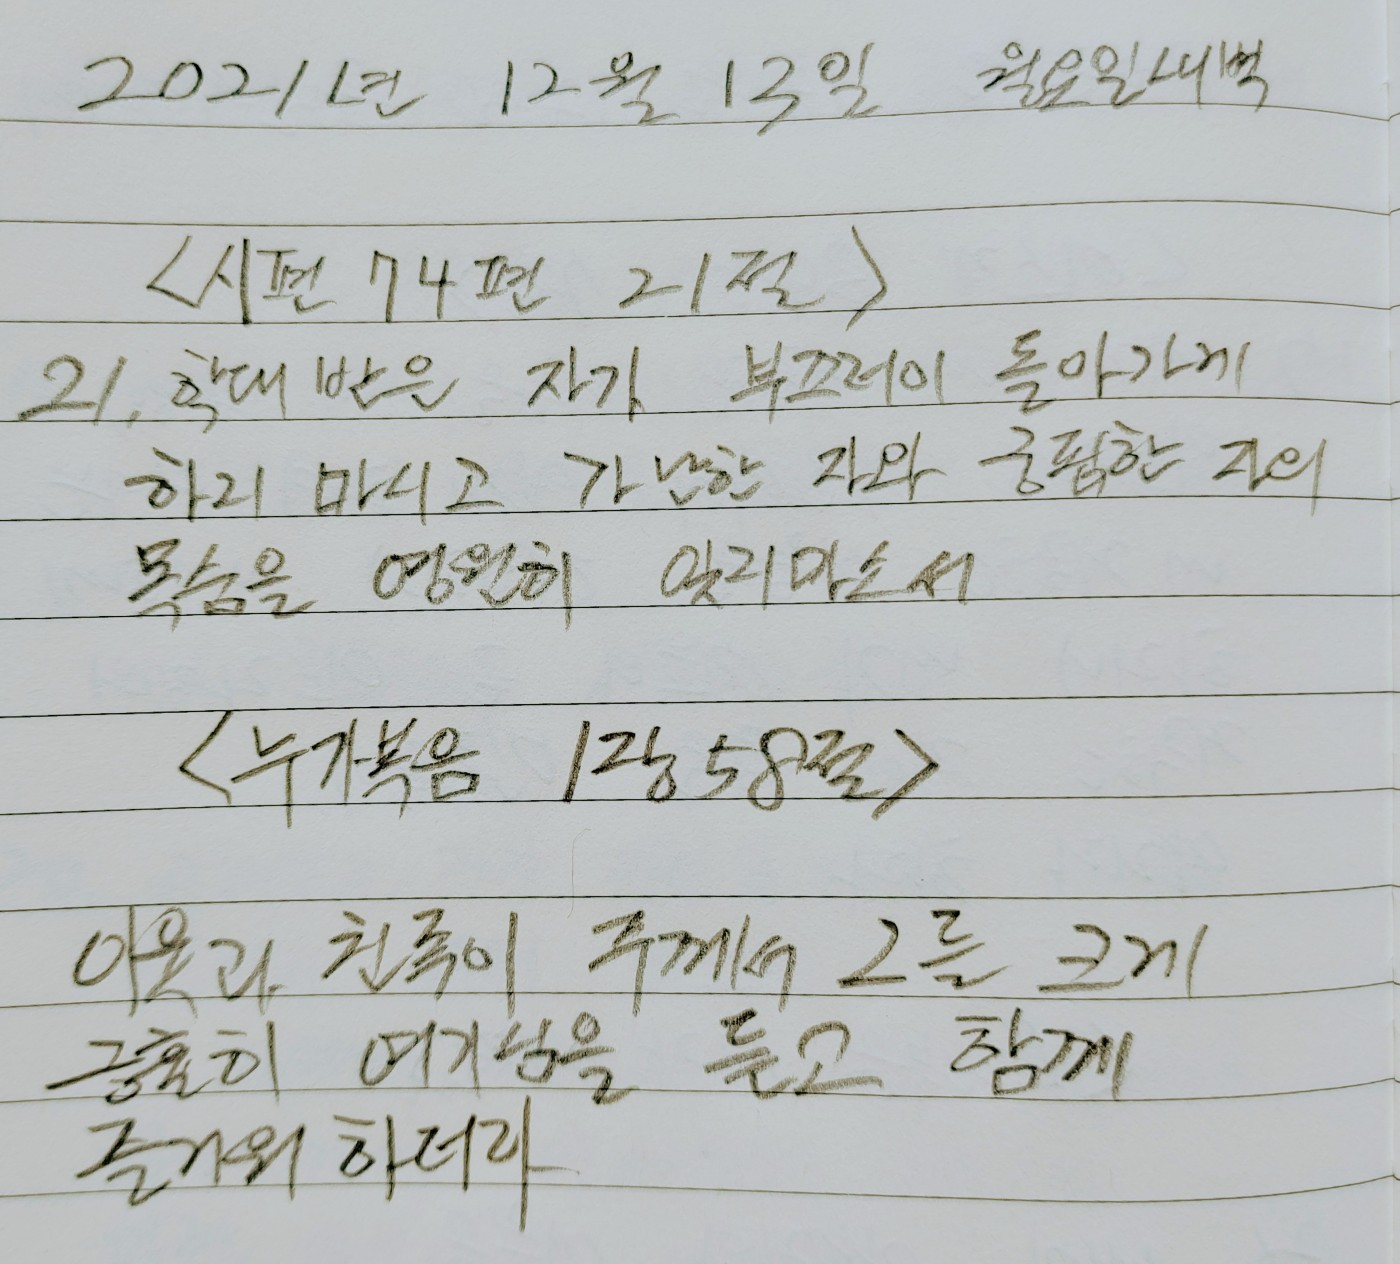 2021년 12월 13일 월요일새벽
<시편 74편 21절>
21. 학대 받은 자가 부끄러이 돌아가게
하지 마시고 가난한 자와 궁핍한 자의
목숨을 영원히 잊지마소서
<누가복음 1장 58절>
이웃과 친족이 주께서 그를 크게
긍휼히 여기심을 듣고 함께
즐거워 하더라